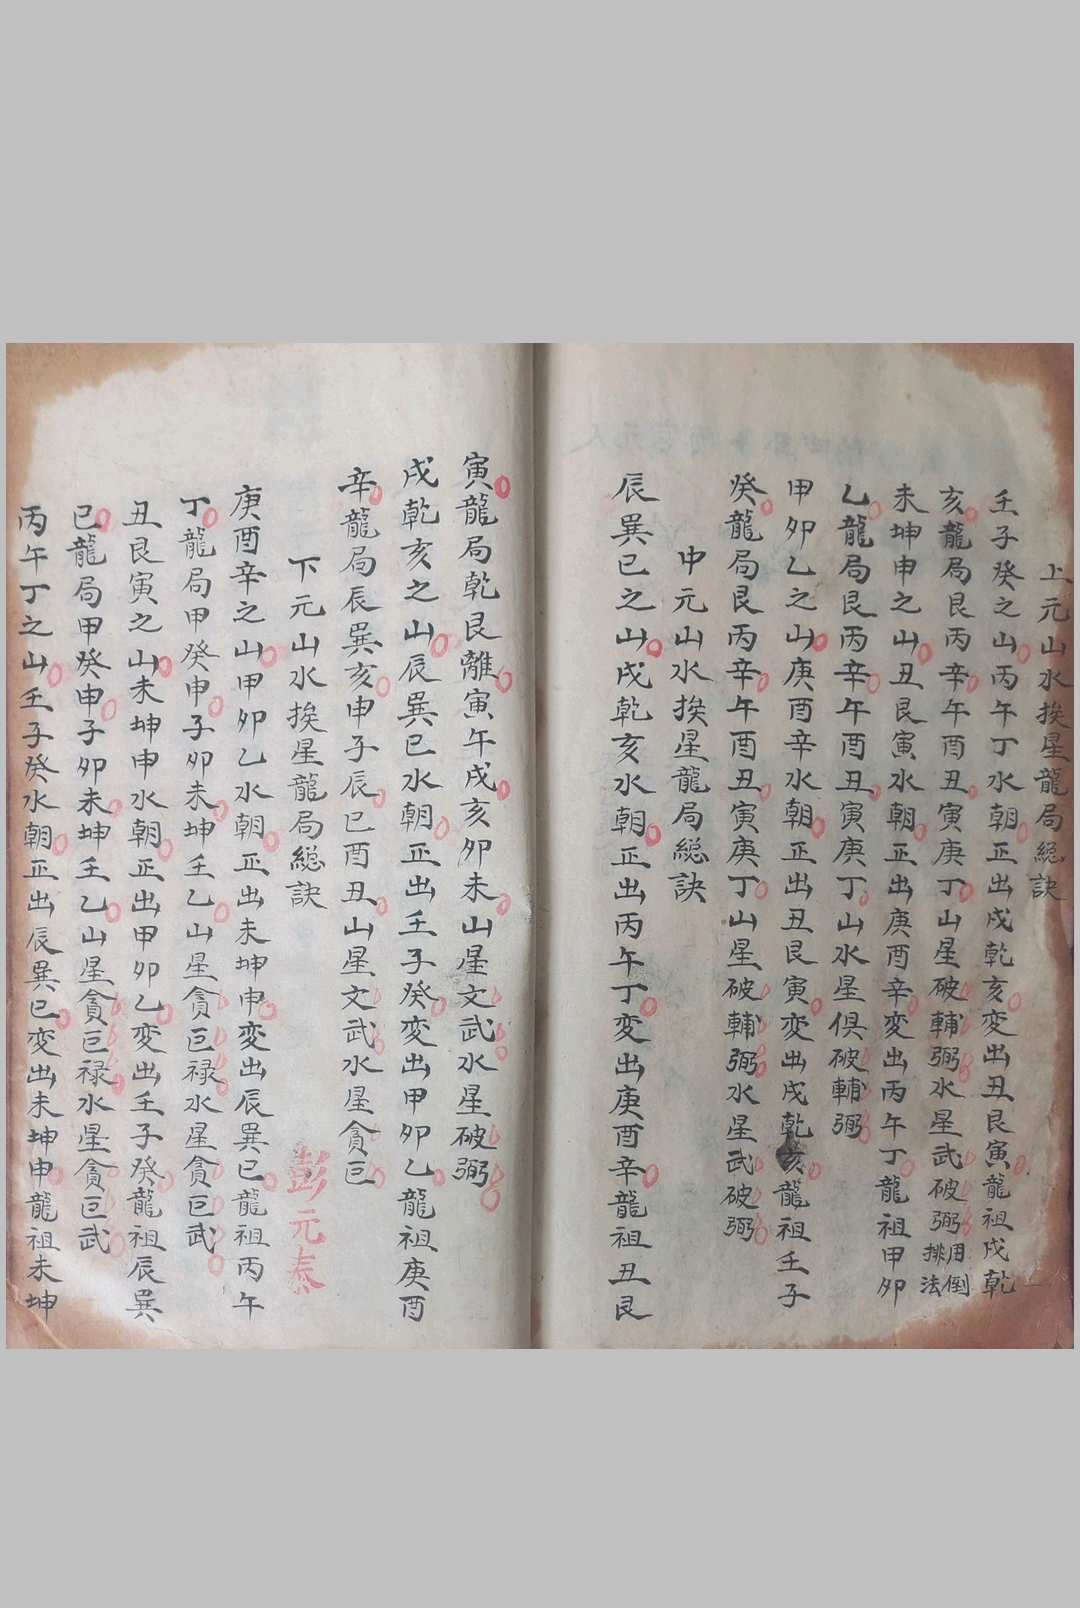 上元山水挨星龍局総訣
壬子癸之山丙午丁水朝正出戌乾亥变出丑艮寅龍祖戌乾
亥龍局艮丙辛午酉丑寅庚丁山星破輔弼水星武破弼用倒排法
未坤申之山丑艮寅水朝正出庚酉辛变出丙午丁龍祖甲卯
乙龍局艮丙辛午酉丑寅庚丁山水星俱破輔弼
甲卯乙之山庚酉辛水朝正出丑艮寅变出戌乾亥龍祖壬子
癸龍局艮丙辛午酉丑寅庚丁山星破輔弼水星武破弼
中元山水挨星龍局総訣
辰巽巳之山戌乾亥水朝正出丙午丁变出庚酉辛龍祖丑艮
寅龍局乾艮離寅午戌亥卯未山星文武水星破弼
戌乾亥之山辰巽巳水朝正出壬子癸变出甲卯乙龍祖庚酉
辛龍局辰巽亥申子辰巳酉丑山星文武水星貪巨
下元山水挨星龍局総訣
彭元泰
庚酉辛之山甲卯乙水朝正出未坤申变出辰巽巳龍祖丙午
丁龍局甲癸申子卯未坤壬乙山星貪巨禄水星貪巨武
丑艮寅之山未坤申水朝正出甲卯乙变出壬子癸龍祖辰巽
巳龍局甲癸申子卯未坤壬乙山星貪巨禄水星貪巨武
丙午丁之山壬子癸水朝正出辰巽巳变出未坤申龍祖未坤